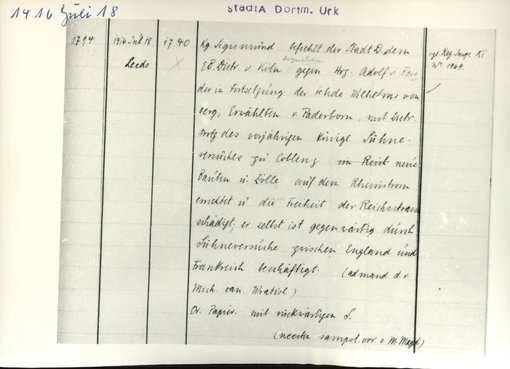 1416 Juli 18
StadtA Dortm. Urk
1794
1416 Juli 18
Leeds
1740
X
Kg Sigismund befiehlt der Stadt D, dem
EB. Dietr. v. Köln beizustehen gegen Hrz. Adolf v. Berg
der in Fortsetzung der Fehde Wilhelms von
Berg, Erwählten v. Paderborn, mit Dietr.
trotz des vorjährigen königl. Sühne-
versuches zu Coblenz neue
Bauten u. Zölle auf dem Rheinstrom
errichtet u. die Freiheit der Reichsstrasse
schädigt, er selbst ist gegenwärtig durch
Sühneversuche zwischen England und
Frankreich beschäftigt. (admand d. r.
Mich. van Wratisl)
Or. Papier. mit rückwärtigem S.
vgl. Reg. Imp. XI
N° 1969.